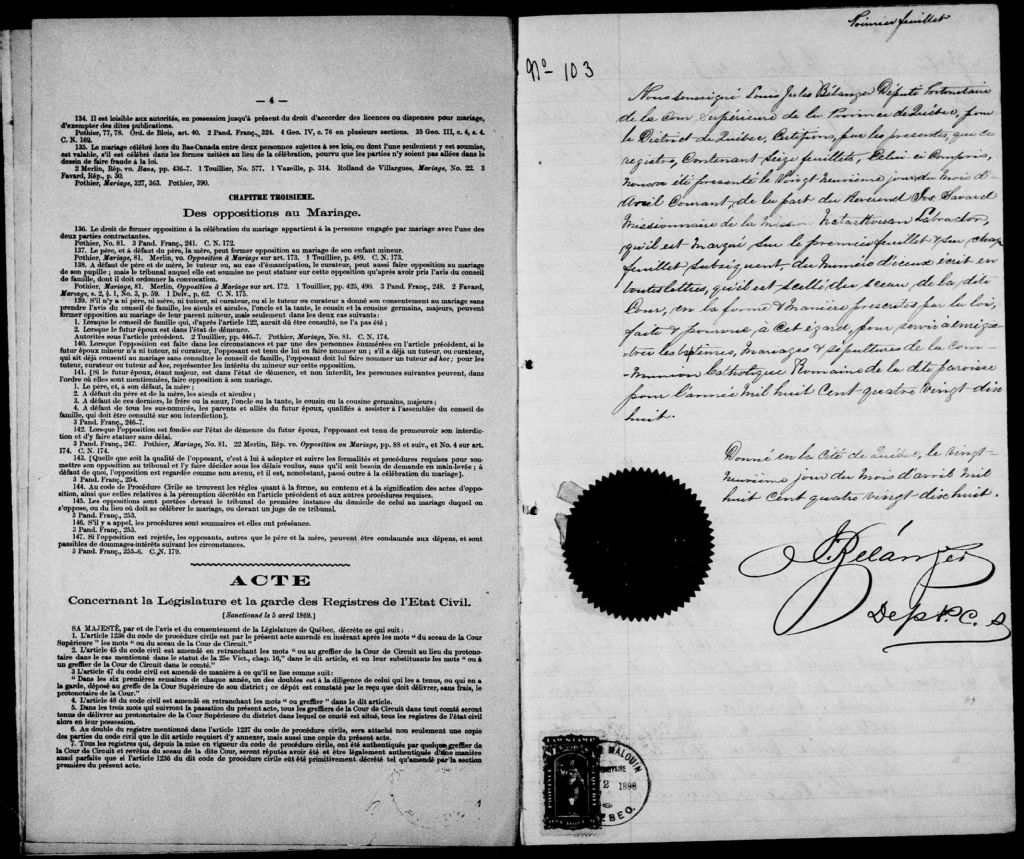 — 4 —
134. Il est loisible aux autorités, en possession jusqu'à présent du droit d'accorder des licences ou dispenses pour mariage,
d'exempter des dites publications.
Pothier, 77, 78. Ord. de Blois, art. 40. 2 Pand. Franç., 324. 4 Geo. IV, c. 76 en plusieurs sections. 35 Geo. III, c. 4, s. 4.
C. N. 169.
135. Le mariage célébré hors du Bas-Canada entre deux personnes sujettes à ses lois, ou dont l'une seulement y est soumise,
est valable, s'il est célébré dans les formes usitées au lieu de la célébration, pourvu que les parties n'y soient pas allées dans le
dessein de faire fraude à la loi.
2 Merlin, Rép. vo. Bans, pp. 436-7. 1 Touillier, No. 577. 1 Vazeille, p. 314. Rolland de Villargues, Mariage, No. 22. 3
Favard, Rép., p. 30.
Pothier, Mariage, 327, 363. Pothier, 390.
CHAPITRE TROISIEME.
Des oppositions au Mariage.
136. Le droit de former opposition à la célébration du mariage appartient à la personne engagée par mariage avec l'une des
deux parties contractantes.
Pothier, No. 81. 3 Pand. Franç., 241. C. N. 172.
137. Le père, et à défaut du père, la mère, peut former opposition au mariage de son enfant mineur.
Pothier, Mariage, 81. Merlin, vo. Opposition à Mariage sur art. 173. 1 Touillier, p. 489. C. N. 173.
138. A défaut de père et de mère, le tuteur ou, au cas d'émancipation, le curateur, peut aussi faire opposition au mariage
de son pupille; mais le tribunal auquel elle est soumise ne peut statuer sur cette opposition qu'après avoir pris l'avis du conseil
de famille, dont il doit ordonner la convocation.
Pothier, Mariage, 81. Merlin, Opposition à Mariage sur art. 172. 1 Touillier, pp. 425, 490. 3 Pand. Franç., 248. 2 Favard,
Mariage, s. 2, § 1, No. 3, p. 59. 1 Delv., p. 62. C. N. 175.
139. S'il n'y a ni père, ni mère, ni tuteur, ni curateur, ou si le tuteur ou curateur a donné son consentement au mariage sans
prendre l'avis du conseil de famille, les aieuls et aieules, l'oncle et la tante, le cousin et la cousine germains, majeurs, peuvent
former opposition au mariage de leur parent mineur, mais seulement dans les deux cas suivants:
1. Lorsque le conseil de famille qui, d'après l'article 122, aurait dû être consulté, ne l'a pas été;
2. Lorsque le futur époux est dans l'état de démence.
Autorités sous l'article précédent. 2 Touillier, pp. 446-7. Pothier, Mariage, No. 81. C. N. 174.
140. Lorsque l'opposition est faite dans les circonstances et par une des personnes énumérées en l'article précédent, si le
futur époux mineur n'a ni tuteur, ni curateur, l'opposant est tenu de lui en faire nommer un; s'il a déjà un tuteur, ou curateur,
qui ait déjà consenti au mariage sans consulter le conseil de famille, l'opposant doit lui faire nommer un tuteur ad hoc; pour les
tuteur, curateur ou tuteur ad hoc, représenter les intérêts du mineur sur cette opposition.
141. [Si le futur époux, étant majeur, est dans l'état de démence, et non interdit, les personnes suivantes peuvent, dans
l'ordre où elles sont mentionnées, faire opposition à son mariage.
1. Le père, et, à son défaut, la mère;
2. A défaut du père et de la mère, les aieuls et aieules;
3. A défaut de ces derniers, le frère ou la sœur, l'oncle ou la tante, le cousin ou la cousine germains, majeurs;
4. A défaut de tous les sus-nommés, les parents et alliés du futur époux, qualifiés à assister à l'assemblée du conseil de
famille, qui doit être consulté sur son interdiction].
3 Pand. Franç., 246-7.
142. Lorsque l'opposition est fondée sur l'état de démence du futur époux, l'opposant est tenu de promouvoir son interdic-
tion et d'y faire statuer sans délai.
3 Pand. Franç., 247. Pothier, Mariage, No. 81. 22 Merlin, Rép. vo. Opposition au Mariage, pp. 88 et suiv., et No. 4 sur art.
174. C. N. 174.
143. [Quelle que soit la qualité de l'opposant, c'est à lui à adopter et suivre les formalités et procédures requises pour sou-
mettre son opposition au tribunal et l'y faire décider sous les délais voulus, sans qu'il soit besoin de demande en main-levée; à
défaut de quoi, l'opposition est regardée comme non avenue, et il est, nonobstant, passé outre à la célébration du mariage].
3 Pand. Franç., 254.
144. Au code de Procédure Civile se trouvent les règles quant à la forme, au contenu et à la signification des actes d'oppo-
sition, ainsi que celles relatives à la péremption décrétée en l'article précédent et aux autres procédures requises.
145. Les oppositions sont portées devant le tribunal de première instance du domicile de celui au mariage duquel on
s'oppose, ou du lieu où doit se célébrer le mariage, ou devant un juge de ce tribunal.
3 Pand. Franç., 253.
146. S'il y a appel, les procédures sont sommaires et elles ont préséance.
3 Pand. Franç., 253.
147. Si l'opposition est rejetée, les opposants, autres que le père et la mère, peuvent être condamnés aux dépens, et sont
passibles de dommages-intérêts suivant les circonstances.
3 Pand. Franç., 255-6. C. N. 179.
ACTE
Concernant la Législature et la garde des Registres de l'Etat Civil.
[Sanctionné le 5 avril 1869.]
SA MAJESTÉ, par et de l'avis et du consentement de la Législature de Québec, décrète ce qui suit:
1. L'article 1236 du code de procédure civile est par le présent acte amendé en insérant après les mots “ du sceau de la Cour
Supérieure ” les mots “ ou du sceau de la Cour de Circuit.”
2. L'article 45 du code civil est amendé en retranchant les mots “ ou au greffier de la Cour de Circuit au lieu du protono-
taire dans le cas mentionné dans le statut de la 25e Vict., chap. 16,” dans le dit article, et en leur substituants les mots “ ou à
un greffier de la Cour de Circuit dans le comté.”
3 L'article 47 du code civil est amendé de manière à ce qu'il se lise comme suit:
“ Dans les six premières semaines de chaque année, un des doubles est à la diligence de celui qui les a tenus, ou qui en a
la garde, déposé au greffe de la Cour Supérieure de son district; ce dépôt est constaté par le reçu que doit délivrer, sans frais, le
protonotaire de la Cour.”
4. L'article 48 du code civil est amendé en retranchant les mots “ ou greffier ” dans le dit article.
5. Dans les trois mois qui suivront la passation du présent acte, tous les greffiers de la Cour de Circuit dans tout comté seront
tenus de délivrer au protonotaire de la Cour Supérieure du district dans lequel ce comté est situé, tous les registres de l'état civil
alors en leur possession.
6. Au double du registre mentionné dans l'article 1237 du code de procédure civile, sera attaché non seulement une copie
des parties du code civil que le dit article requiert d'y annexer, mais aussi une copie du présent acte.
7. Tous les registres qui, depuis la mise en vigueur du code de procédure civile, ont été authentiqués par quelque greffier de
la Cour de Circuit et revêtus du sceau de la dite Cour, seront réputés avoir été et être légalement authentiqués d'une manière
aussi parfaite que si l'article 1236 du dit code de procédure civile eût été primitivement décrété tel qu'amendé par la section
première du présent acte.
Premier feuillet
No 103
Nous soussigné Louis Jules Bélanger Député Protonotaire
de la Cour Supérieure de la Province de Québec, pour
le District de Québec, Certifions, par les présentes, que ce
registre, Contenant Seize feuillets, Celui ci Compris,
nous a été présenté le Vingt neuvième jour du Mois d'
Avril Courant, de la part du Révérend Jos Savard
Missionnaire de la Mission Natashkouan Labrador,
qu'il est marqué sur le premier feuillet & sur chaq
feuillet subséquent, du Numéro d'iceux écrit en
toutes lettres, qu'il est scellé du sceau de la dite
Cour, en la forme & manière prescrites par la loi,
faite & pourvue à cet égard, pour servir à enrégis-
-trer les baptêmes, Mariages & sépultures de la Com-
-munion Catholique Romaine de la dite paroisse
pour l'année Mil huit Cent quatre Vingt dix
huit.
Donné en la Cité de Québec, le vingt-
neuvième jour du mois d'avril mil
huit cent quatre vingt-dix huit.
J. Bélanger
Dep. P. C. S
MALOUIN
2 1898
QUÉBEC